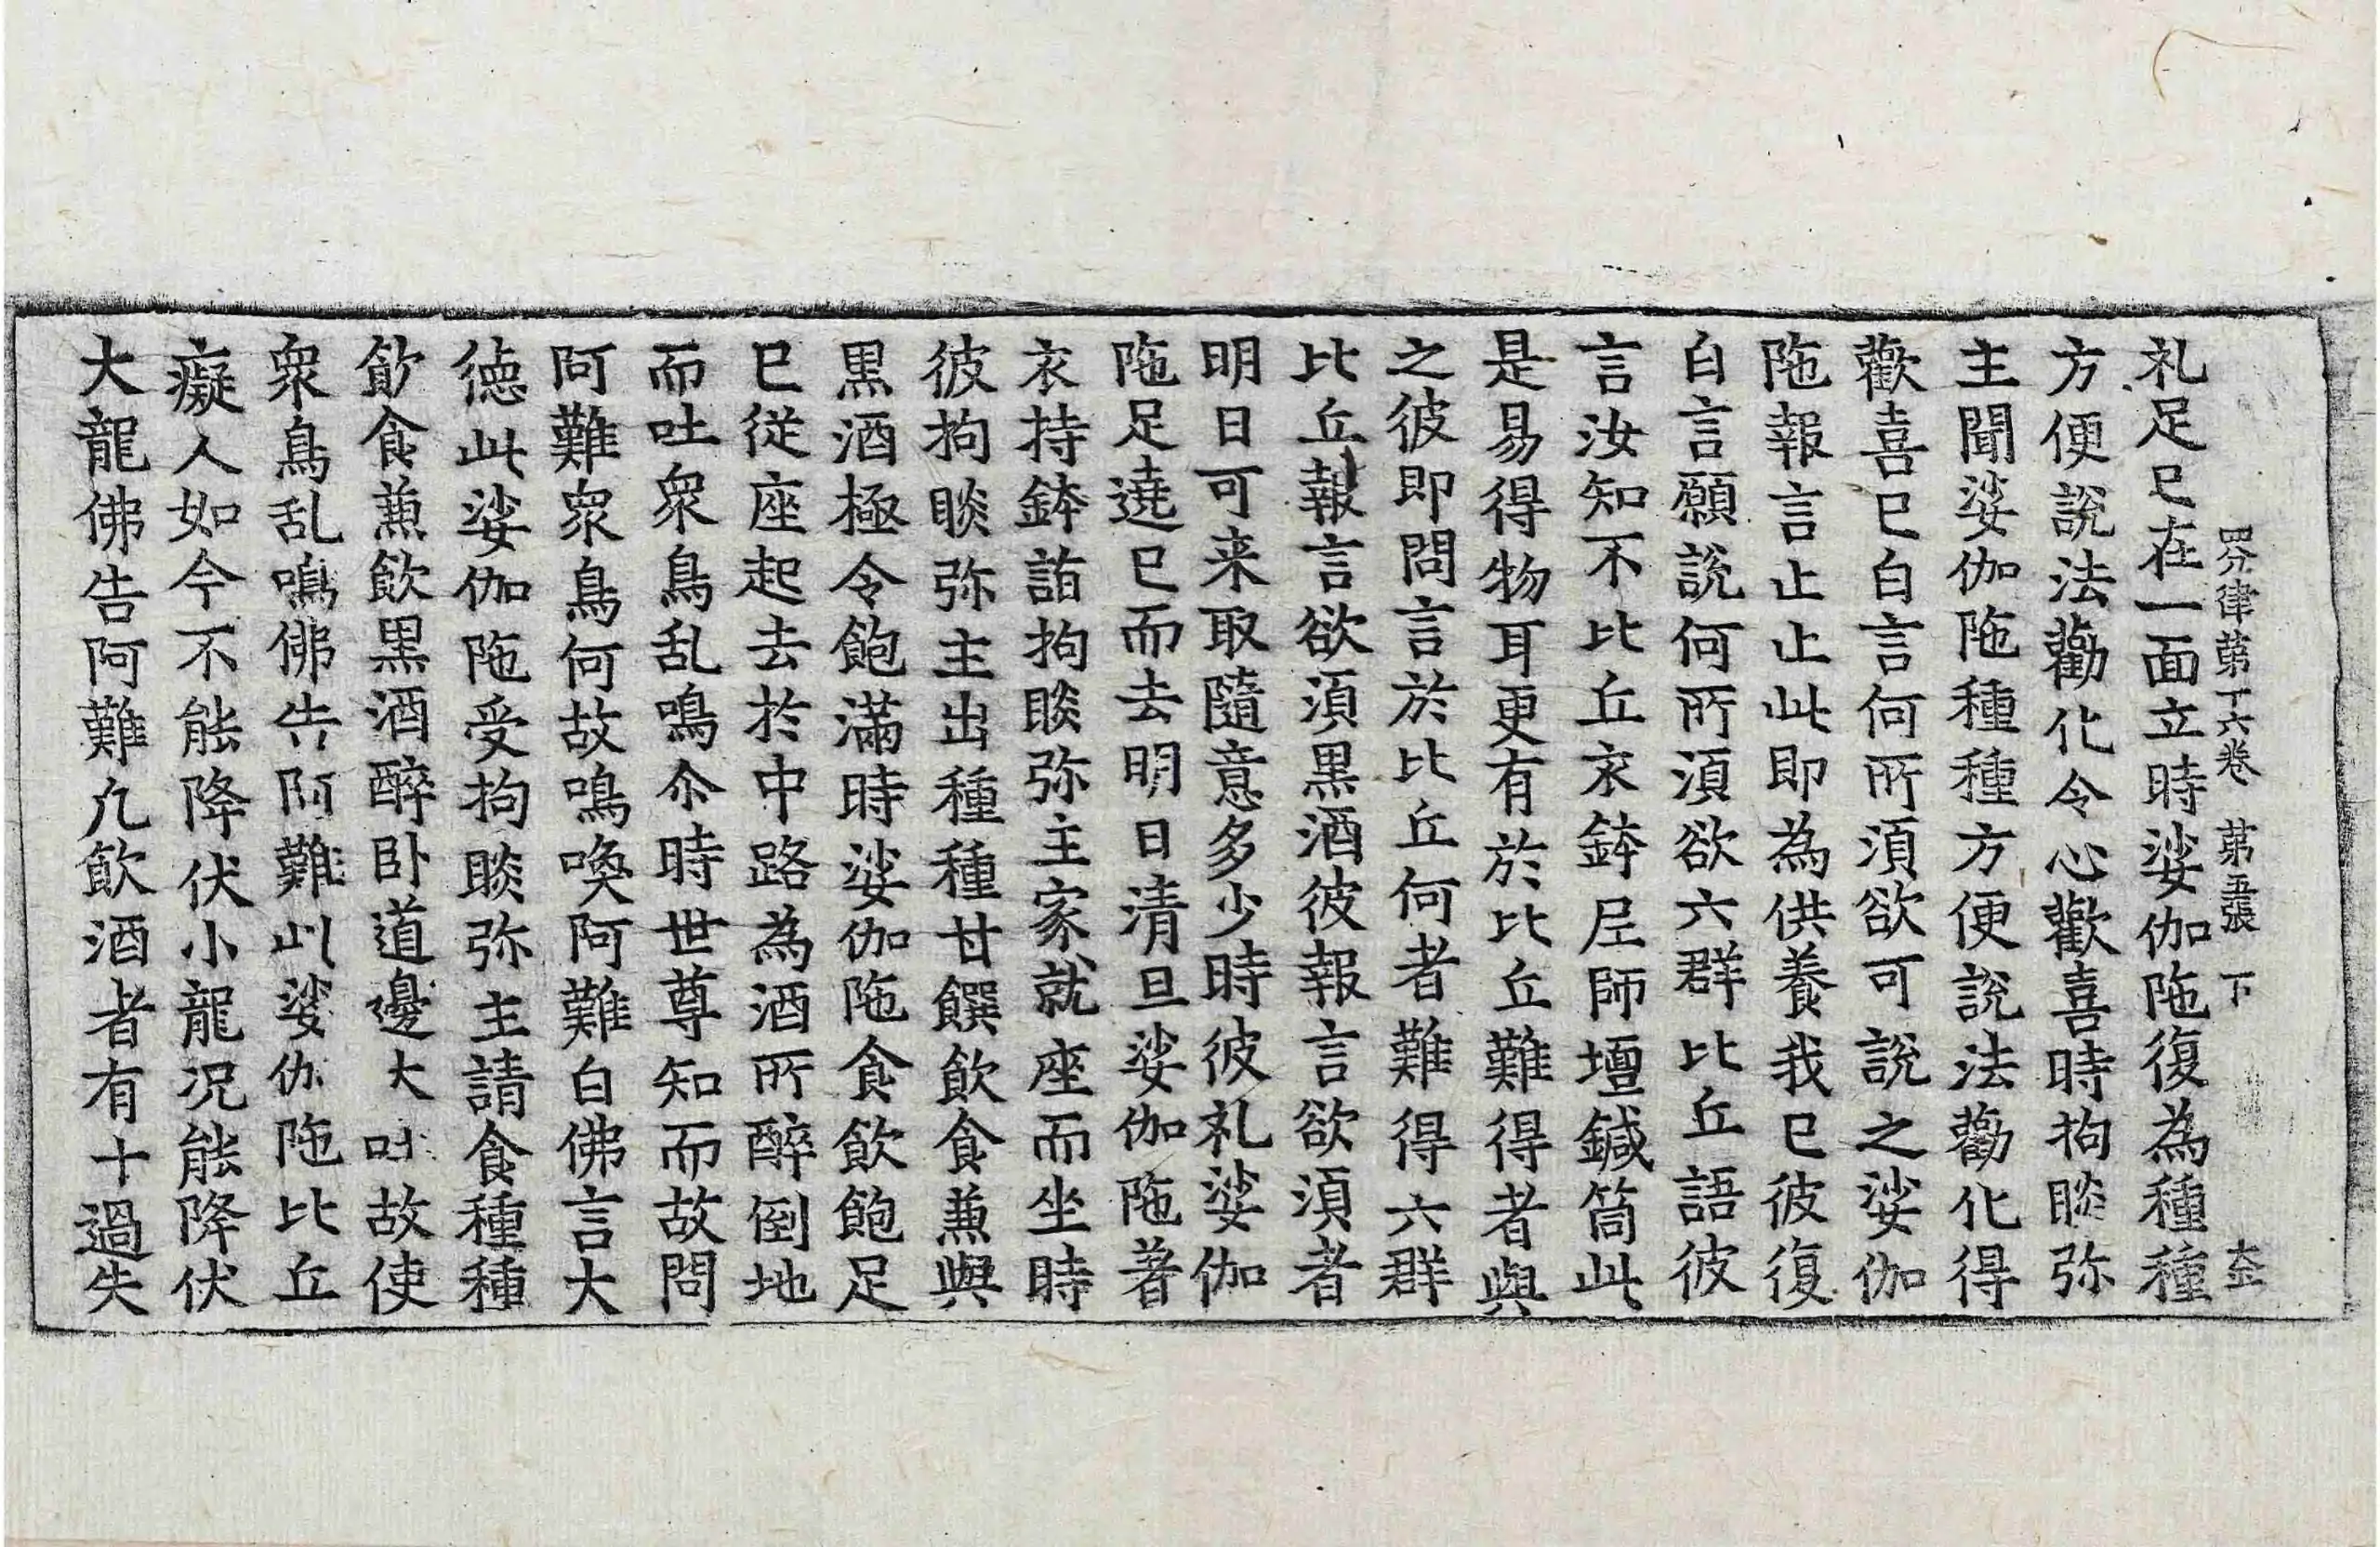 四分律第十六卷 第五張 下
礼足已在一面立時娑伽陁復為種種
方便說法勸化令心歡喜時拘睒弥
主聞娑伽陁種種方便說法勸化得
歡喜已白言何所湏欲可說之娑伽
陁報言止止此即為供養我已彼復
白言願說何所湏欲六群比丘語彼
言汝知不比丘衣鉢尼師壇鍼筒此
是易得物耳更有於比丘難得者與
之彼即問言於比丘何者難得六群
比丘報言欲湏黒酒彼報言欲湏者
明日可来取隨意多少時彼礼娑伽
陁足遶已而去明日清旦娑伽陁著
衣持鉢詣拘睒弥主家就座而坐時
彼拘睒弥主出種種甘饌飲食兼與
黒酒極令飽滿時娑伽陁食飲飽足
已従座起去於中路為酒所醉倒地
而吐衆鳥乱鳴尒時世尊知而故問
阿難衆鳥何故鳴喚阿難白佛言大
徳此娑伽陁受拘睒弥主請食種種
飲食兼飲黒酒醉卧道邊大吐故使
衆鳥乱鳴佛告阿難此娑伽陁比丘
癡人如今不能降伏小龍况能降伏
大龍佛告阿難凢飲酒者有十過失